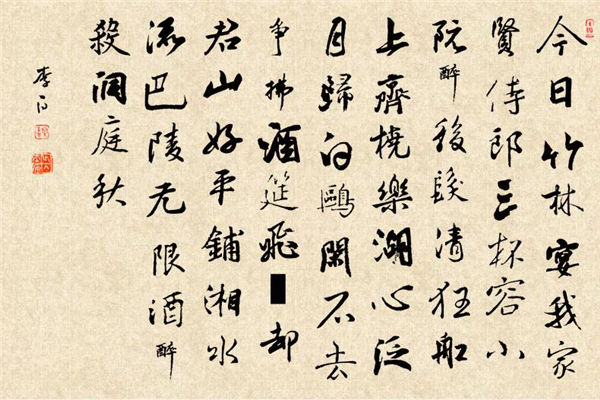 今日竹林宴我家
賢侍郎三杯容小
阮醉後發清狂船
上齊橈樂湖心泛
月歸白鷗閑不去
爭拂酒筵飛却
君山好平鋪湘水
流巴陵无限酒醉
殺洞庭秋
李白